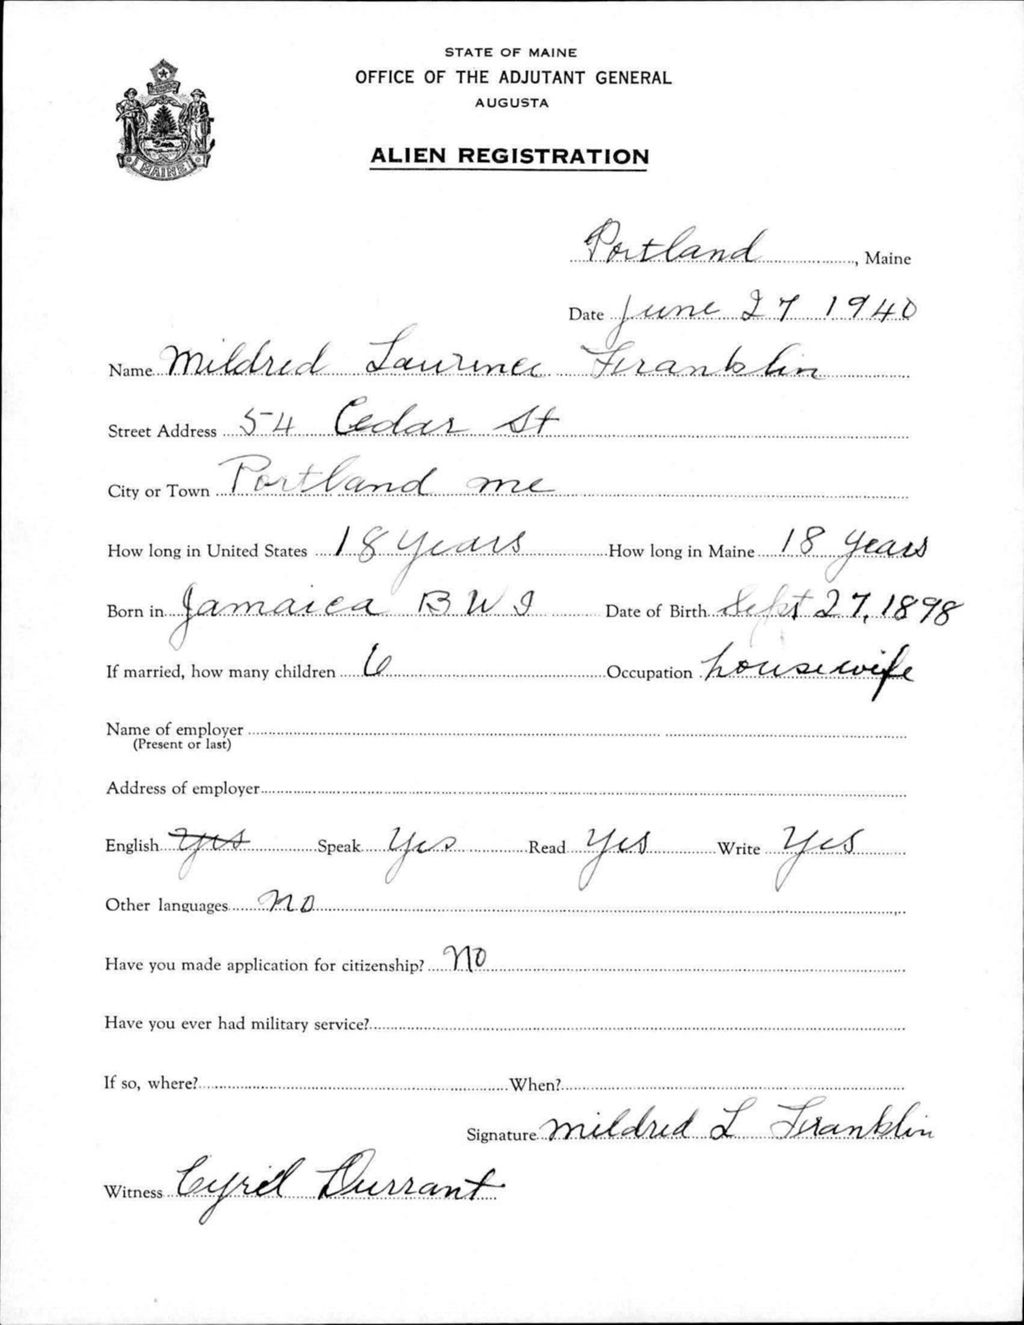 STATE OF MAINE
OFFICE OF THE ADJUTANT GENERAL
AUGUSTA
ALIEN REGISTRATION
MAINE
Portland, Maine
Date June 27 1940
Name Mildred Laurence Franklin
Street Address 54 Cedar St
City or Town Portland me
How long in United States 18 years How long in Maine 18 years
Born in Jamaica B W I Date of Birth Sept 27, 1898
If married, how many children 6 Occupation housewife
Name of employer
(Present or last)
Address of employer
English yes Speak yes Read yes Write yes
Other languages no
Have you made application for citizenship? no
Have you ever had military service?
If so, where? When?
Signature Mildred L Franklin
Witness Cyril Durrant